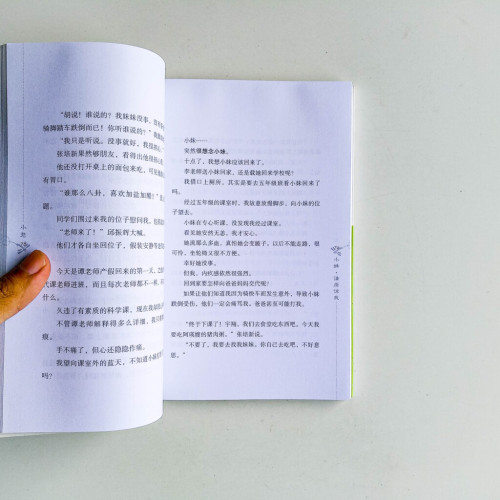 “胡说！谁说的？我妹妹没事，
骑脚踏车跌倒而已！你听谁说的？”
“我只是听说。没事就好，我很
张培新果然够朋友，看得出他
他还没打开桌上的面包来吃，可
有胃口。
“聊那么八卦，喜欢加盐加醋！”我
题。
同学们围过来我的位子想问我，
“老师来了！”邱振舜大喊。
他们才各自坐回位子，假装安静
今天是谭老师产假回来的第一天，之
代课老师进班，而且每次老师都不一样，
久违了有素质的科学课。现在我却
不管谭老师解释得多么详细，我
痕。
手不痛了，但心还隐隐作痛。
我望向课室外的蓝天，不知道小妹
吗？
小妹
小妹——
突然很想念小妹。
十点了，我想小妹应该回来了。
李老师送小妹回家，还是载她回来学校呢？
我借口上厕所，其实是要去五年级班看小妹回来了
吗。
经过五年级的课室时，我故意放慢脚步，向小妹的位
子望去。
小妹在专心听课，没发现我经过课室。
看见她安然无恙，我才安心。
她流那么多血，真怕她会变瘸子，以后不能走路，很
可怜，坐轮椅又很不方便。
幸好她没事。
但我，内疚感依然很强烈。
回到家要怎样向爸爸妈妈交代呢？
如果让他们知道我因为骑快车前发生意外，导致小妹
跌倒受伤，他们一定会痛骂我，爸爸甚至可能打我。
“终于下课了！宇翔，我们去食堂吃东西吧。今天我
要吃阿嘴嫂的猪肉粥。”张培新说。
“不要了，我要去找我妹妹。你自己去吃吧，不好意
思。”
小妹，请原谅我